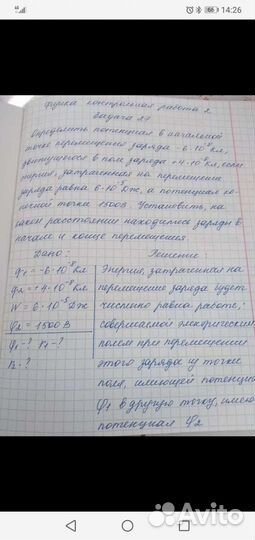 14:26
Физика контрольная работа 2
Задача 21
Определить потенциал в начальной
точке перемещения заряда -6·10⁻⁸ Кл,
движущегося в поле заряда +4·10⁻⁸ Кл, если
энергия, затраченная на перемещение
заряда равна 6·10⁻⁵ Дж, а потенциал ко-
нечной точки 1500В. Установить, на
каком расстоянии находились заряды в
начале и конце перемещения.
Дано: Решение:
q₁ = -6·10⁻⁸ Кл Энергия, затраченная на
q₂ = +4·10⁻⁸ Кл перемещение заряда будет
W = 6·10⁻⁵ Дж численно равна работе,
φ₂ = 1500 В совершаемой электрическим
φ₁ - ? r₁ - ? полем при перемещении
r₂ - ? этого заряда из точки
поля, имеющей потенциал
φ₁ в другую точку, имею
потенциал φ₂
Avito